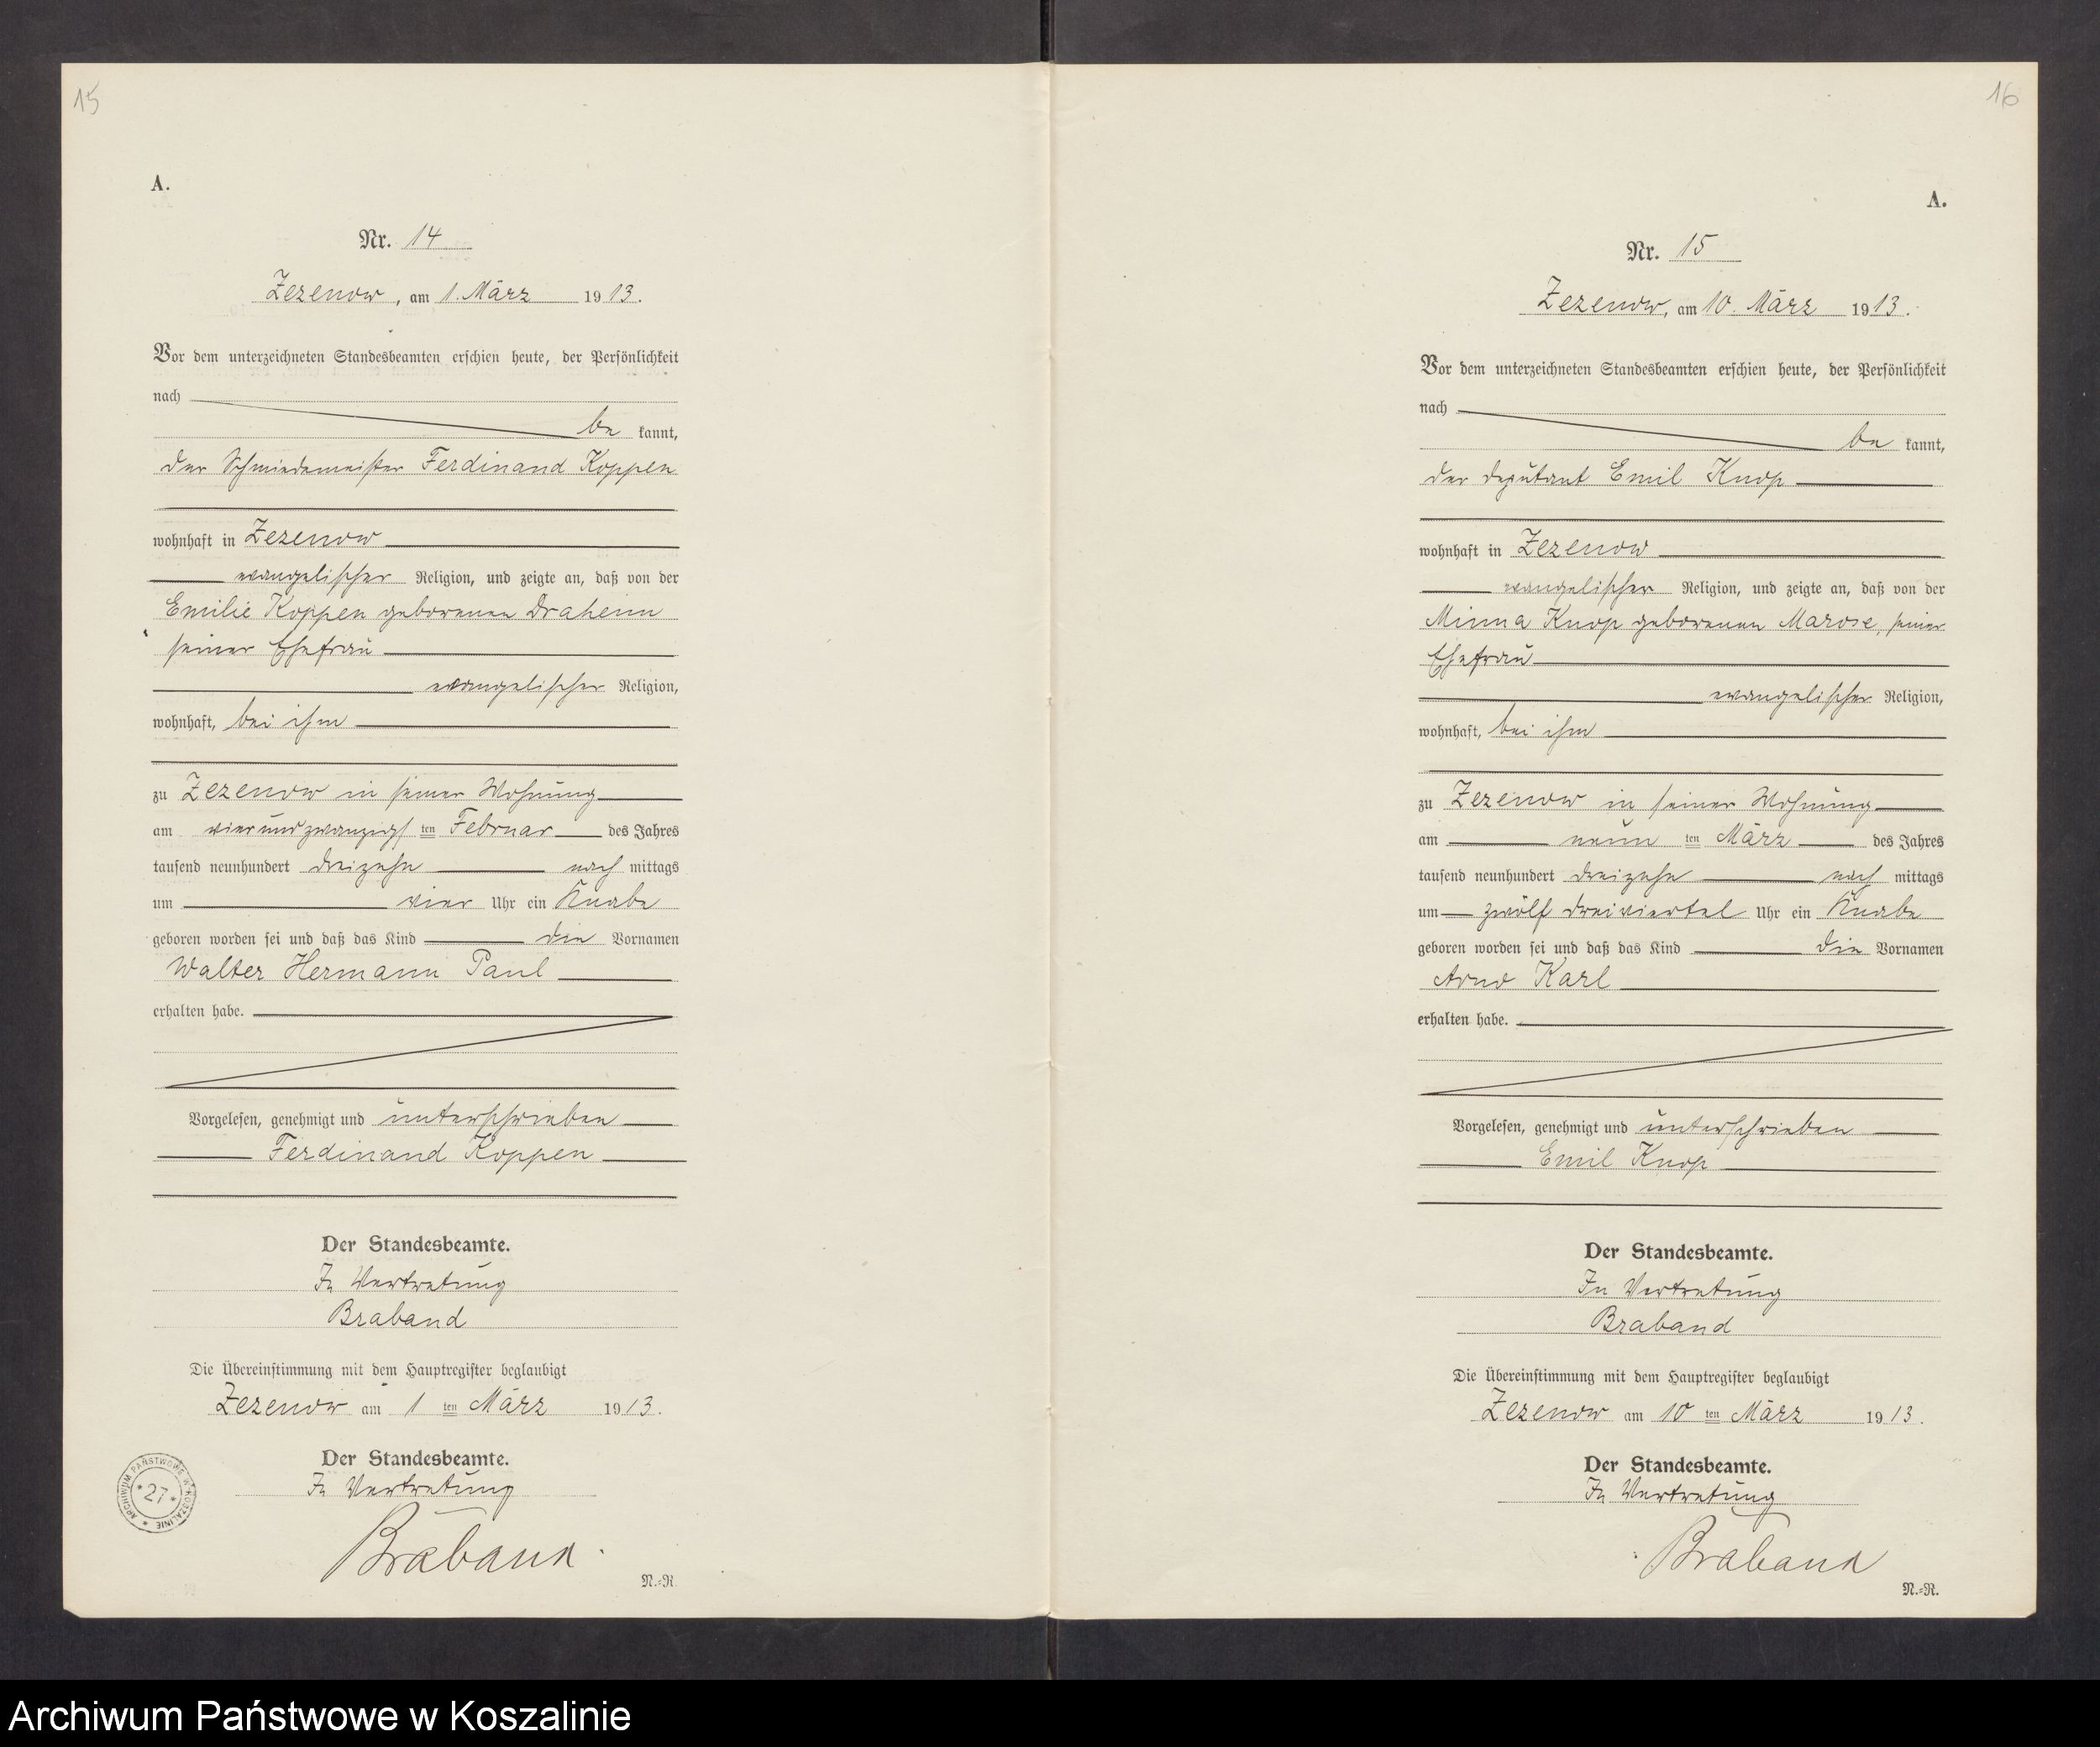 15
A.
Nr. 14
Zezenow, am 1. März 1913.
Vor dem unterzeichneten Standesbeamten erschien heute, der Persönlichkeit
nach
be kannt,
der Schmiedemeister Ferdinand Koppen
wohnhaft in Zezenow
evangelischer Religion, und zeigte an, daß von der
Emilie Koppen geborenen Draheim
seiner Ehefrau
evangelischer Religion,
wohnhaft, bei ihm
zu Zezenow in seiner Wohnung
am vierundzwanzigsten Februar des Jahres
tausend neunhundert dreizehn nach mittags
um vier Uhr ein Knabe
geboren worden sei und daß das Kind die Vornamen
Walter Hermann Paul
erhalten habe.
Vorgelesen, genehmigt und unterschrieben
Ferdinand Koppen
Der Standesbeamte.
In Vertretung
Braband
Die Übereinstimmung mit dem Hauptregister beglaubigt
Zezenow am 1 ten März 1913.
Der Standesbeamte.
In Vertretung
Braband.
N.-R.
ARCHIWUM PAŃSTWOWE W KOSZALINIE
* 27 *
16
A.
Nr. 15
Zezenow, am 10. März 1913.
Vor dem unterzeichneten Standesbeamten erschien heute, der Persönlichkeit
nach
be kannt,
der Deputant Emil Knop
wohnhaft in Zezenow
evangelischer Religion, und zeigte an, daß von der
Minna Knop geborenen Marose, seiner
Ehefrau
evangelischer Religion,
wohnhaft, bei ihm
zu Zezenow in seiner Wohnung
am neun ten März des Jahres
tausend neunhundert dreizehn nach mittags
um zwölf dreiviertel Uhr ein Knabe
geboren worden sei und daß das Kind die Vornamen
Arno Karl
erhalten habe.
Vorgelesen, genehmigt und unterschrieben
Emil Knop
Der Standesbeamte.
In Vertretung
Braband
Die Übereinstimmung mit dem Hauptregister beglaubigt
Zezenow am 10 ten März 1913.
Der Standesbeamte.
In Vertretung
Braband
N.-R.
Archiwum Państwowe w Koszalinie